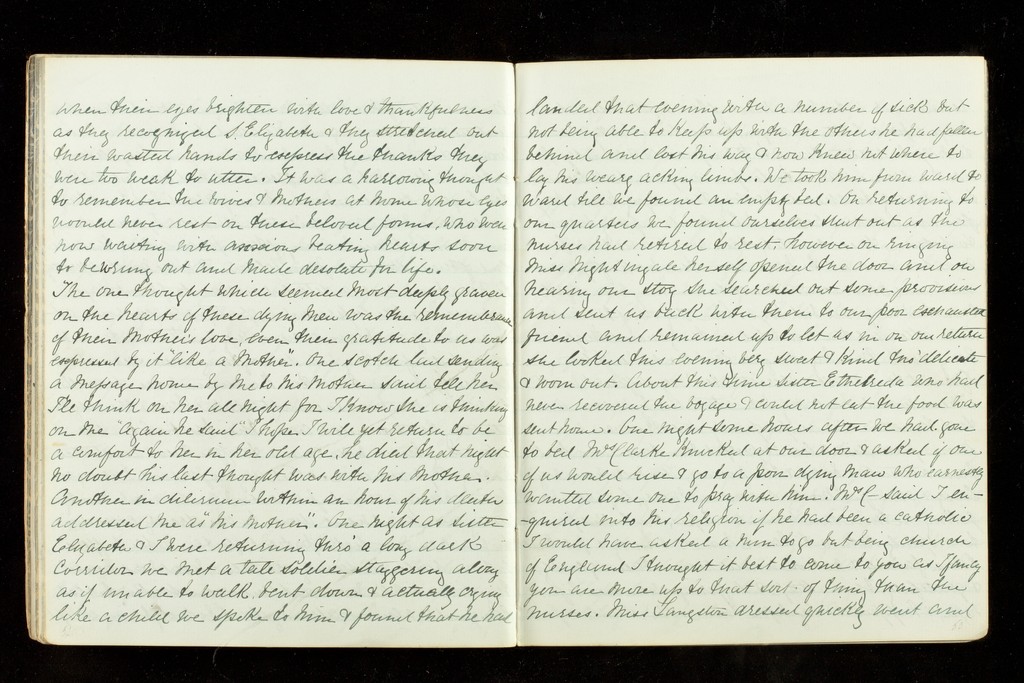 when their eyes brighten with love & thankfulness
as they recognized S. Elizabeth & they stretched out
their wasted hands to express the thanks they
were too weak to utter. It was a harrowing thought
to remember the wives & Mothers at home whose eyes
would never rest on these beloved forms, who were
now waiting with anxious beating hearts soon
to be wrung out and made desolate for life.
The one thought which seemed most deeply graven
on the hearts of these dying men was the remembrance
of their Mother's love, even their gratitude to us was
expressed by it "like a Mother". One scotch lad sending
a message home by me to his Mother said tell her
I'le think on her all night for I know she is thinking
on me "Again he said" I hope I will yet return to be
a comfort to her in her old age, he died that night
no doubt his last thought was with his Mother.
Another in delirium within an hour of his death
addressed me as "his Mother". One night as Sister
Elizabeth & I were returning thro' a long dark
Corridor we met a tall soldier staggering along
as if unable to walk bent down & actually crying
like a child we spoke to him & found that he had
landed that evening with a number of sick but
not being able to keep up with the others he had fallen
behind and lost his way & now knew not where to
lay his weary acking limbs. We took him from ward to
ward till we found an empty bed. On returning to
our quarters we found ourselves shut out as the
nurses had retired to rest. However on ringing
Miss Nightingale herself opened the door and on
hearing our story she searched out some provisions
and sent us back with them to our poor exhausted
friend and remained up to let us in on our return
she looked this evening very sweet & kind tho' delicate
& worn out. About this time Sister Etheldreda who had
never recovered the voyage & could not eat the food was
sent home. One night some hours after we had gone
to bed Mrs Clarke knocked at our door & asked if one
of us would rise & go to a poor dying man who earnestly
wanted some one to pray with him. Mrs C- said I en-
-quired into his religion if he had been a catholic
I would have asked a nun to go but being church
of England I thought it best to come to you as I fancy
you are more up to that sort of thing than the
nurses. Miss Langston dressed quickly went and